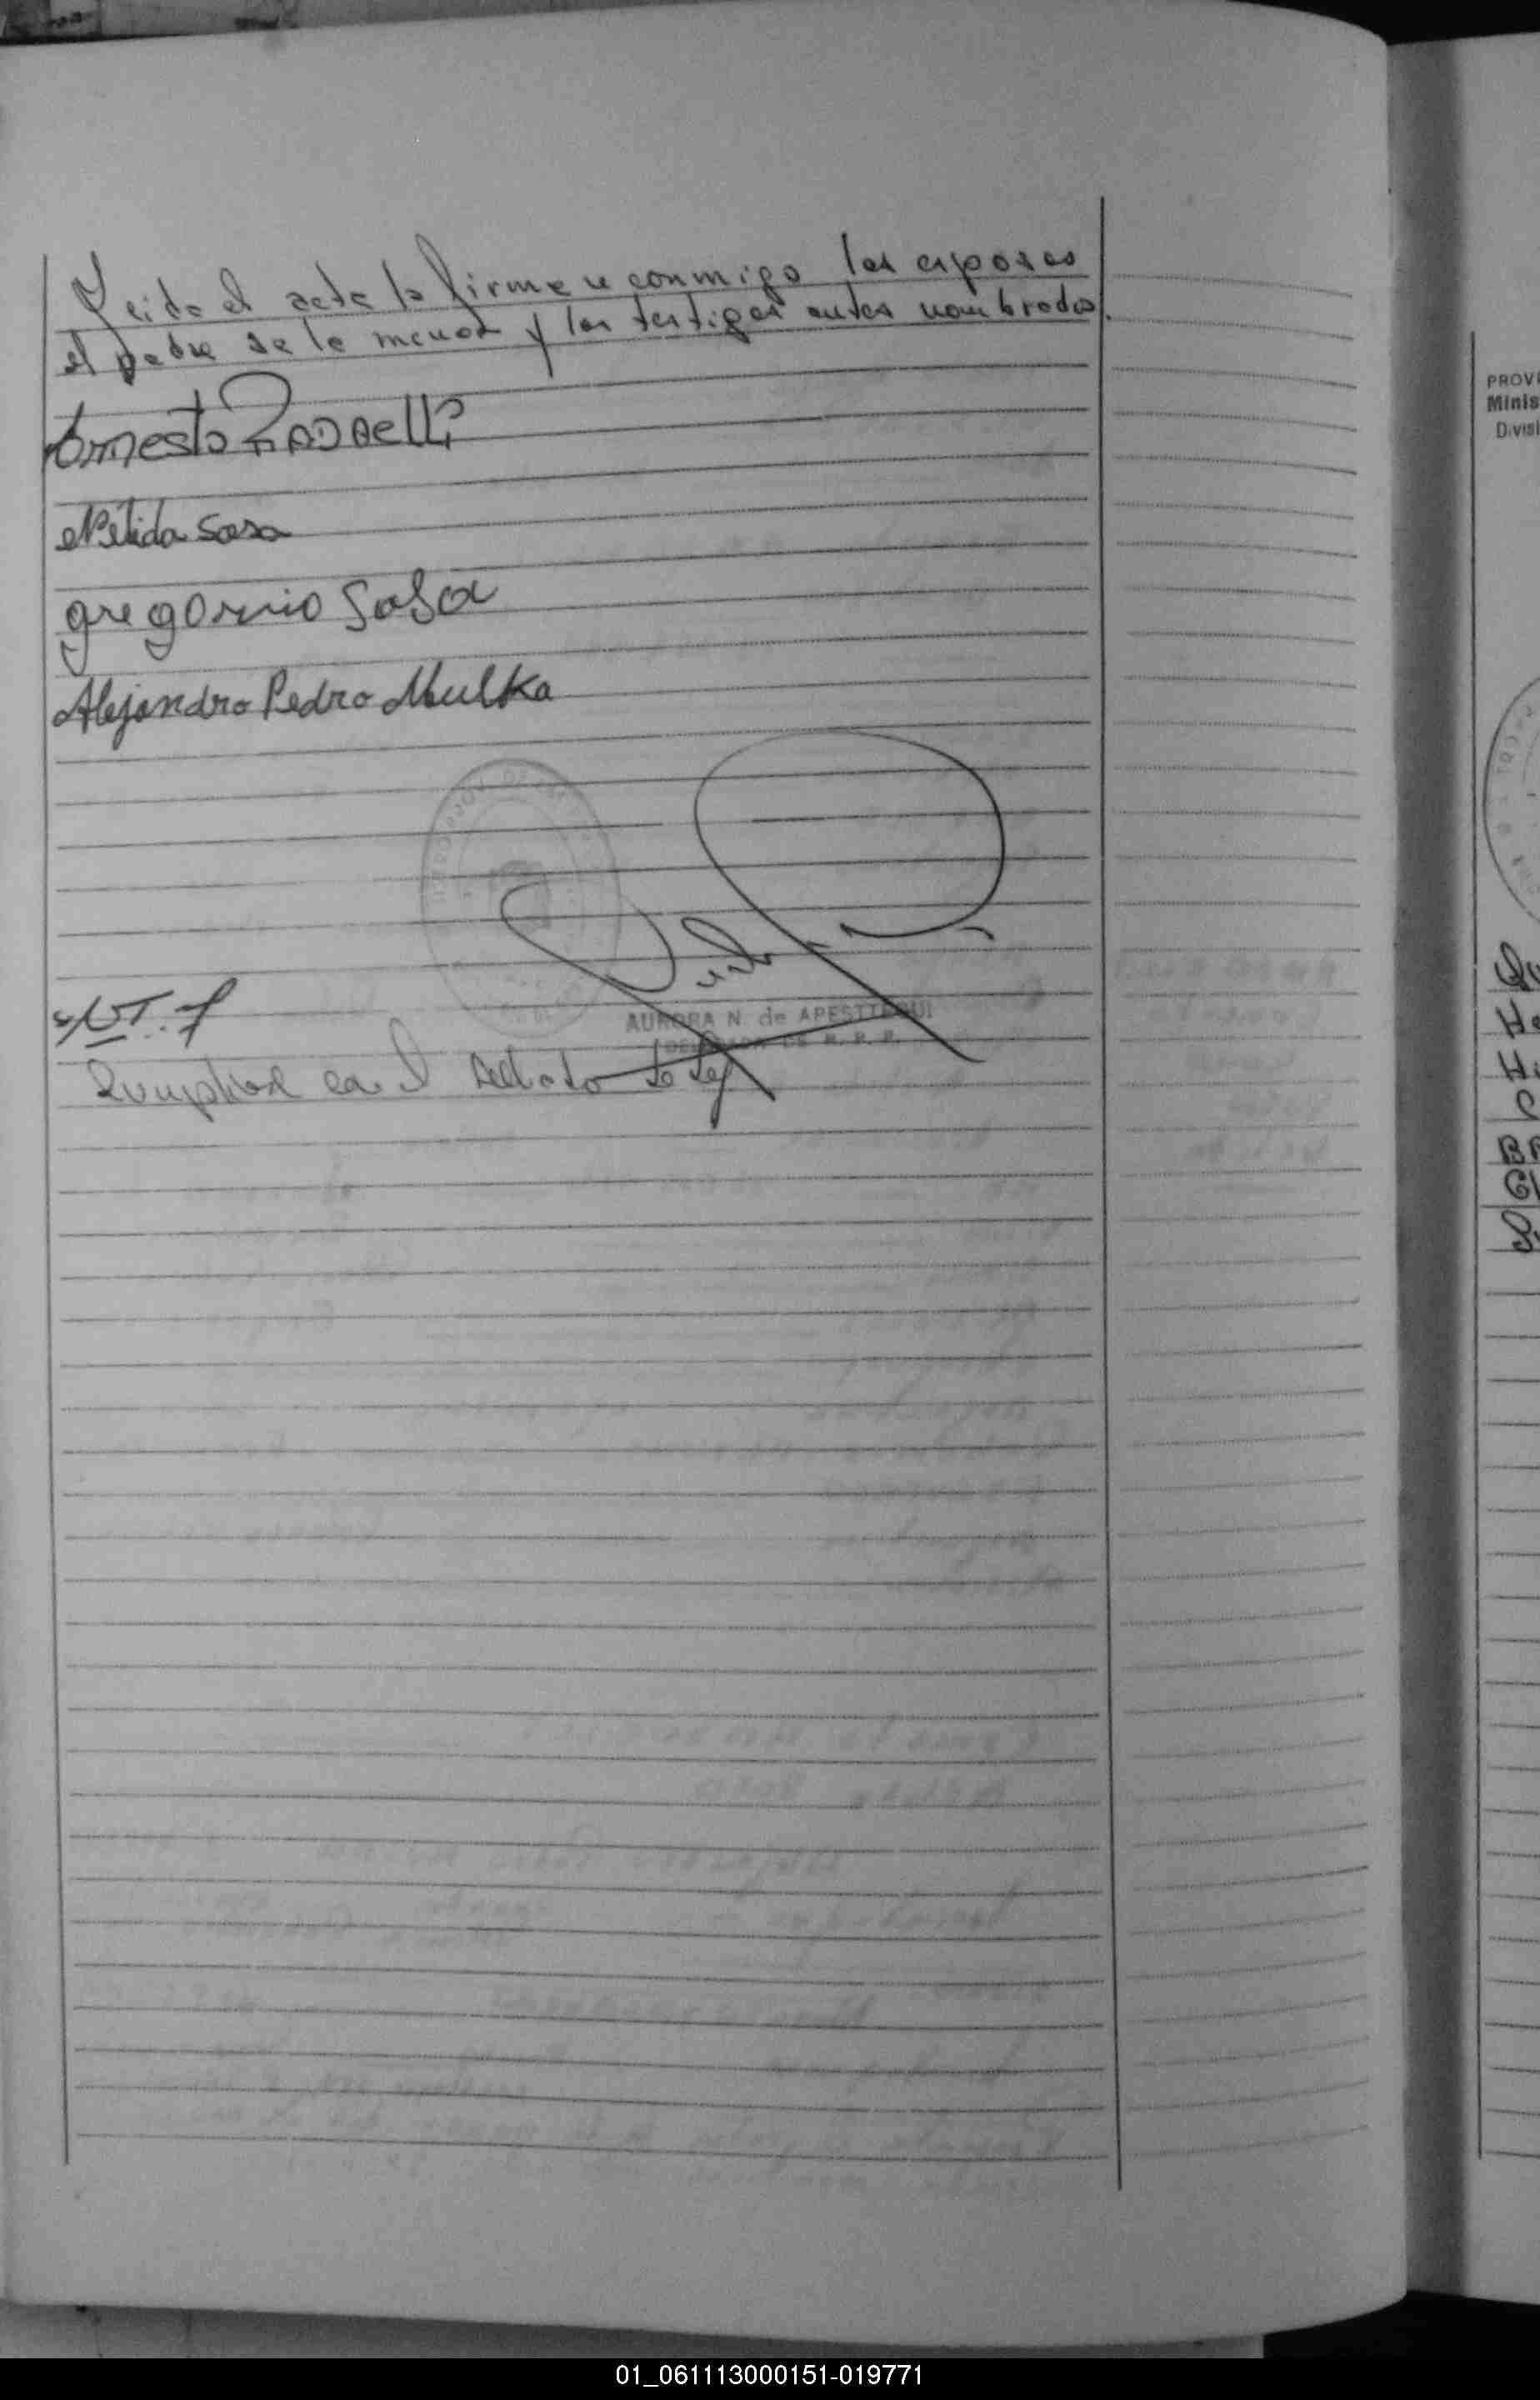 Leida el acta la firman conmigo los esposos
el padre de la menor y los testigos antes nombrados.
Ernesto
Nélida Sosa
gregorio Sosa
Alejandro Pedro Mulka
AURORA N. de APESTTEGUI
DELEGADA DE R. P. P.
en el sellado de ley
PROVI
Minis
Divisi
01_061113000151-019771